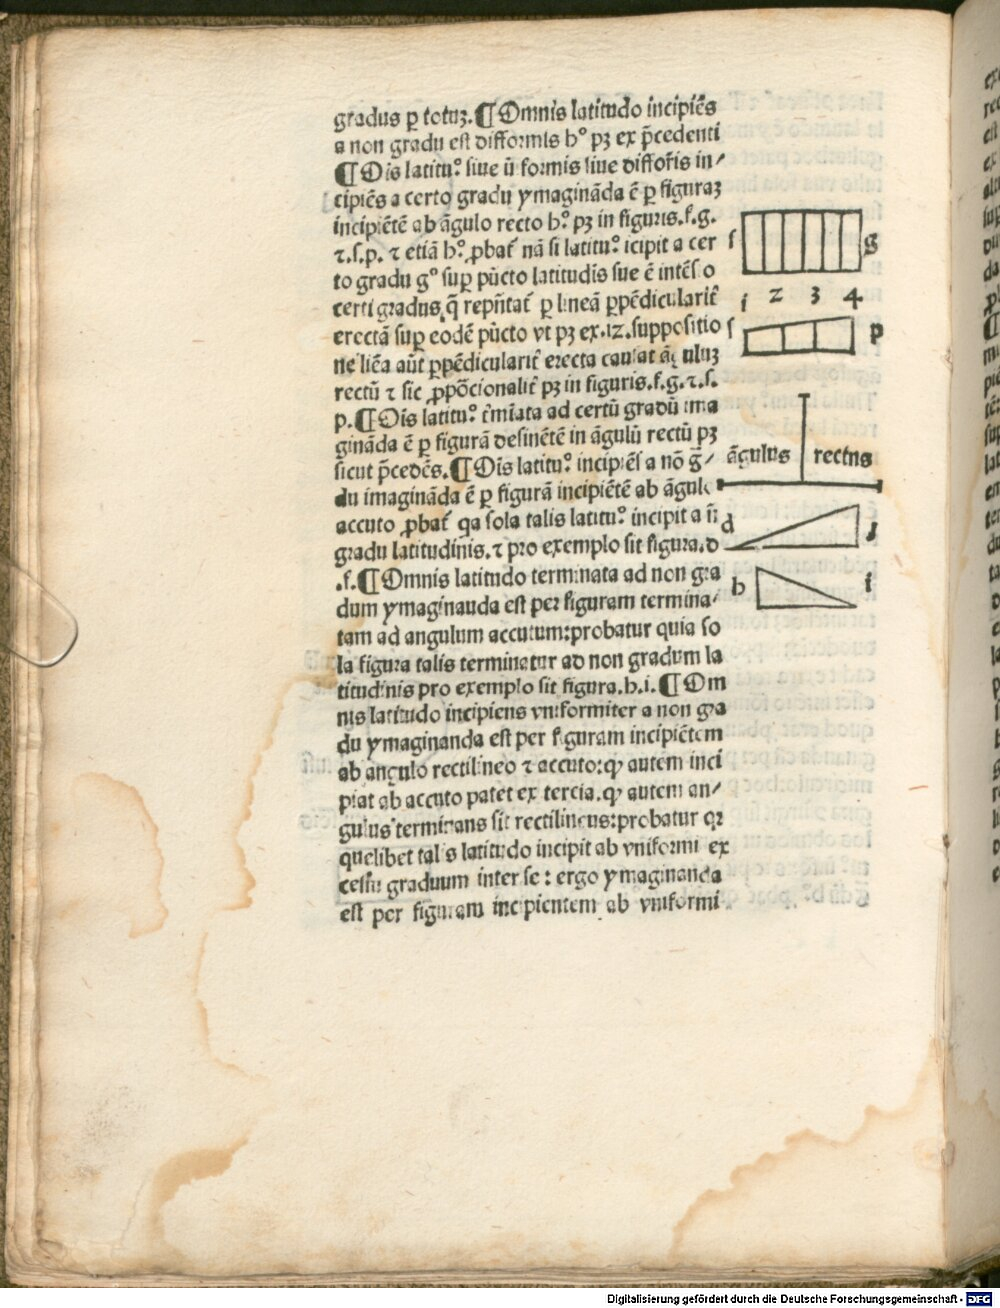 gradus ꝑ totuꝫ. ¶ Omnis latitudo incipiẽs
a non gradu est difformis h° pꝫ ex p̃cedenti
¶ Ois latitu° siue ũ formis siue differ̃is in/
cipiẽs a certo gradu ymaginãda ẽ ꝑ figuraꝫ
incipiẽtẽ ab ãgulo recto h° pꝫ in figuris .f.g.
⁊.s.p. ⁊ etiã h° ꝓbat̃ nã si latitu° icipit a cer
to gradu g° suꝑ pũcto latitudĩs sue ẽ intẽs o
certi gradus q̃ rep̃ntat̃ ꝑ lineã ꝑpẽdicularit̃
erectã suꝑ eodẽ pũcto vt pꝫ ex .12. suppositio
ne liẽa aũt ꝑpẽdicularit̃ erecta causat ãguluꝫ
rectũ ⁊ sic ꝓpõcionalit̃ pꝫ in figuris .f.g.⁊.s.
p. ¶ Ois latitu° t̃mĩata ad certũ gradũ ima
ginãda ẽ ꝑ figurã desinẽtẽ in ãgulũ rectũ pꝫ
sicut p̃cedẽs. ¶ Ois latitu° incipiẽs a nõ g̃/
du imaginãda ẽ ꝑ figurã incipiẽtẽ ab ãgulo
accuto ꝓbat̃ qa sola talis latitu° incipit a ñ
gradu latitudinis. ⁊ pro exemplo sit figura .d
.f. ¶ Omnis latitudo terminata ad non gra
dum ymaginauda est per figuram termina/
tam ad angulum accutum: probatur quia so
la figura talis terminatur ad non gradum la
titudinis pro exemplo sit figura .h.i. ¶ Om
nis latitudo incipiens vniformiter a non gra
du ymaginanda est per figuram incipiẽtem
ab angulo rectilineo ⁊ accuto: qꝫ autem inci
piat ab accuto patet ex tercia. qꝫ autem an/
gulus terminans sit rectilineus: probatur qꝛ
quelibet talis latitudo incipit ab vniformi ex
cessu graduum inter se: ergo ymaginanda
est per figuram incipientem ab vniformi
f g
1 2 3 4
s p
ãgulus rectns
d f
h i
Digitalisierung gefördert durch die Deutsche Forschungsgemeinschaft - DFG